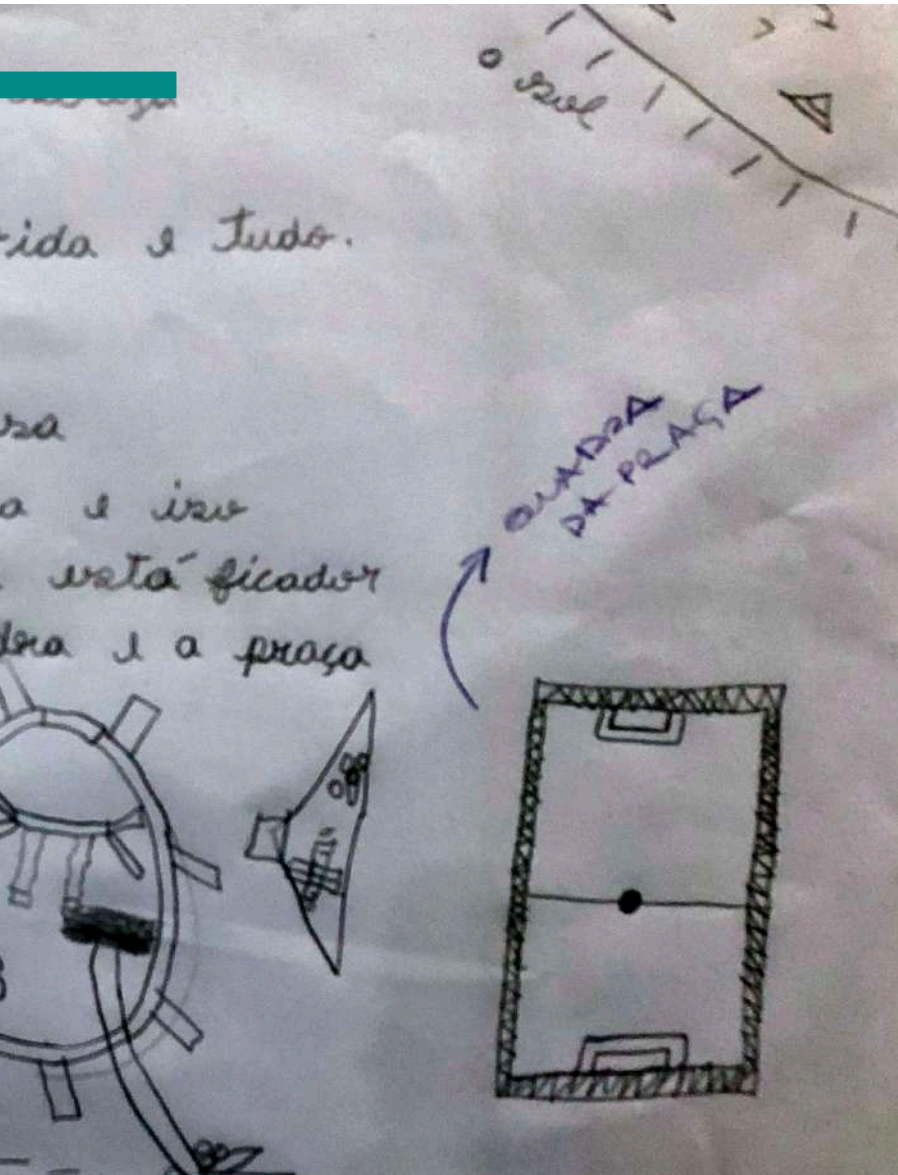 o sol
rida e tudo.
sa
a e iso
está ficador
dra e a praça
QUADRA
DA PRAÇA